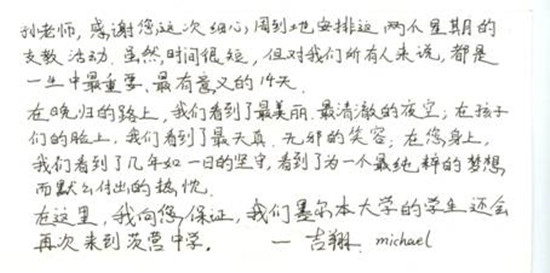 孙老师，感谢您这次细心，周到地安排这两个星期的
支教活动．虽然，时间很短，但对我们所有人来说，都是
一生中最重要、最有意义的14天．
在晚归的路上，我们看到了最美丽．最清澈的夜空；在孩子
们的脸上，我们看到了最天真．无邪的笑容；在您身上，
我们看到了几年如一日的坚守，看到了为一个最纯粹的梦想
而默么付出的热忱．
在这里，我向您保证，我们墨尔本大学的学生还会
再次来到茨营中学。 — 吉翔．michael